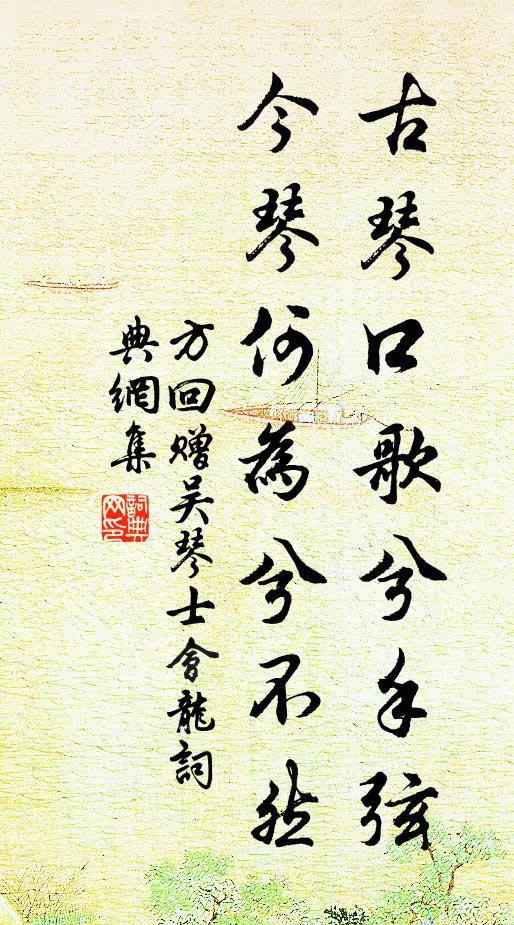 古琴口歌兮手弦
今琴何為兮不然
方回贈吴琴士會龍詞
典網集
詞典
网印